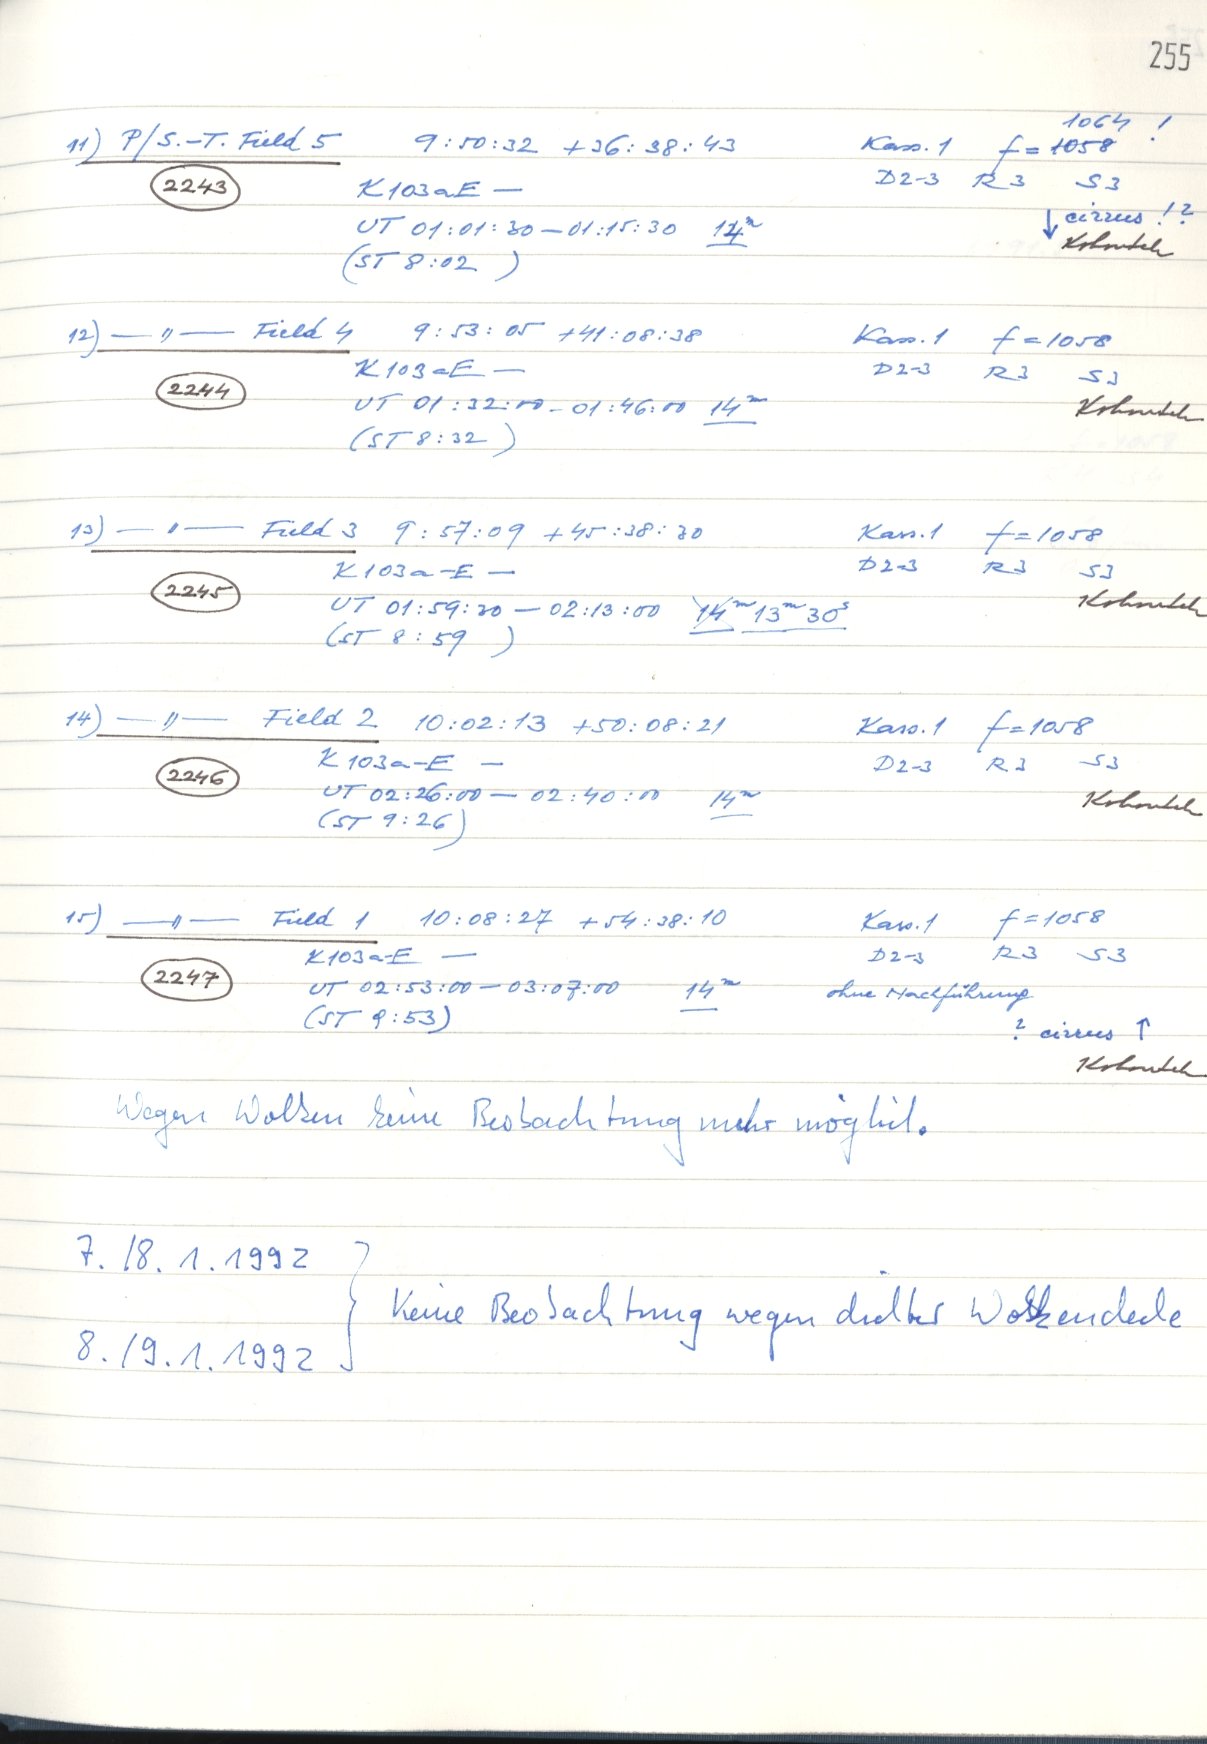 255
1064 !
11) P/S.-T. Field 5 9:50:32 +36:38:43 Kass.1 f=1058
2243 K103aE — D2-3 R3 S3
UT 01:01:30—01:15:30 14m ↓ cirrus !?
(ST 8:02 ) Kohoutek
12) —"— Field 4 9:53:05 +41:08:38 Kass.1 f=1058
2244 K103aE — D2-3 R3 S3
UT 01:32:00—01:46:00 14m Kohoutek
(ST 8:32 )
13) —"— Field 3 9:57:09 +45:38:30 Kass.1 f=1058
2245 K103a-E — D2-3 R3 S3
UT 01:59:30—02:13:00 14m 13m 30s Kohoutek
(ST 8:59 )
14) —"— Field 2 10:02:13 +50:08:21 Kass.1 f=1058
2246 K103a-E — D2-3 R3 S3
UT 02:26:00—02:40:00 14m Kohoutek
(ST 9:26)
15) —"— Field 1 10:08:27 +54:38:10 Kass.1 f=1058
2247 K103a-E — D2-3 R3 S3
UT 02:53:00—03:07:00 14m ohne Nachführung
(ST 9:53) ? cirrus ↑
Kohoutek
Wegen Wolken keine Beobachtung mehr möglich.
7./8.1.1992
Keine Beobachtung wegen dichter Wolkendecke
8./9.1.1992